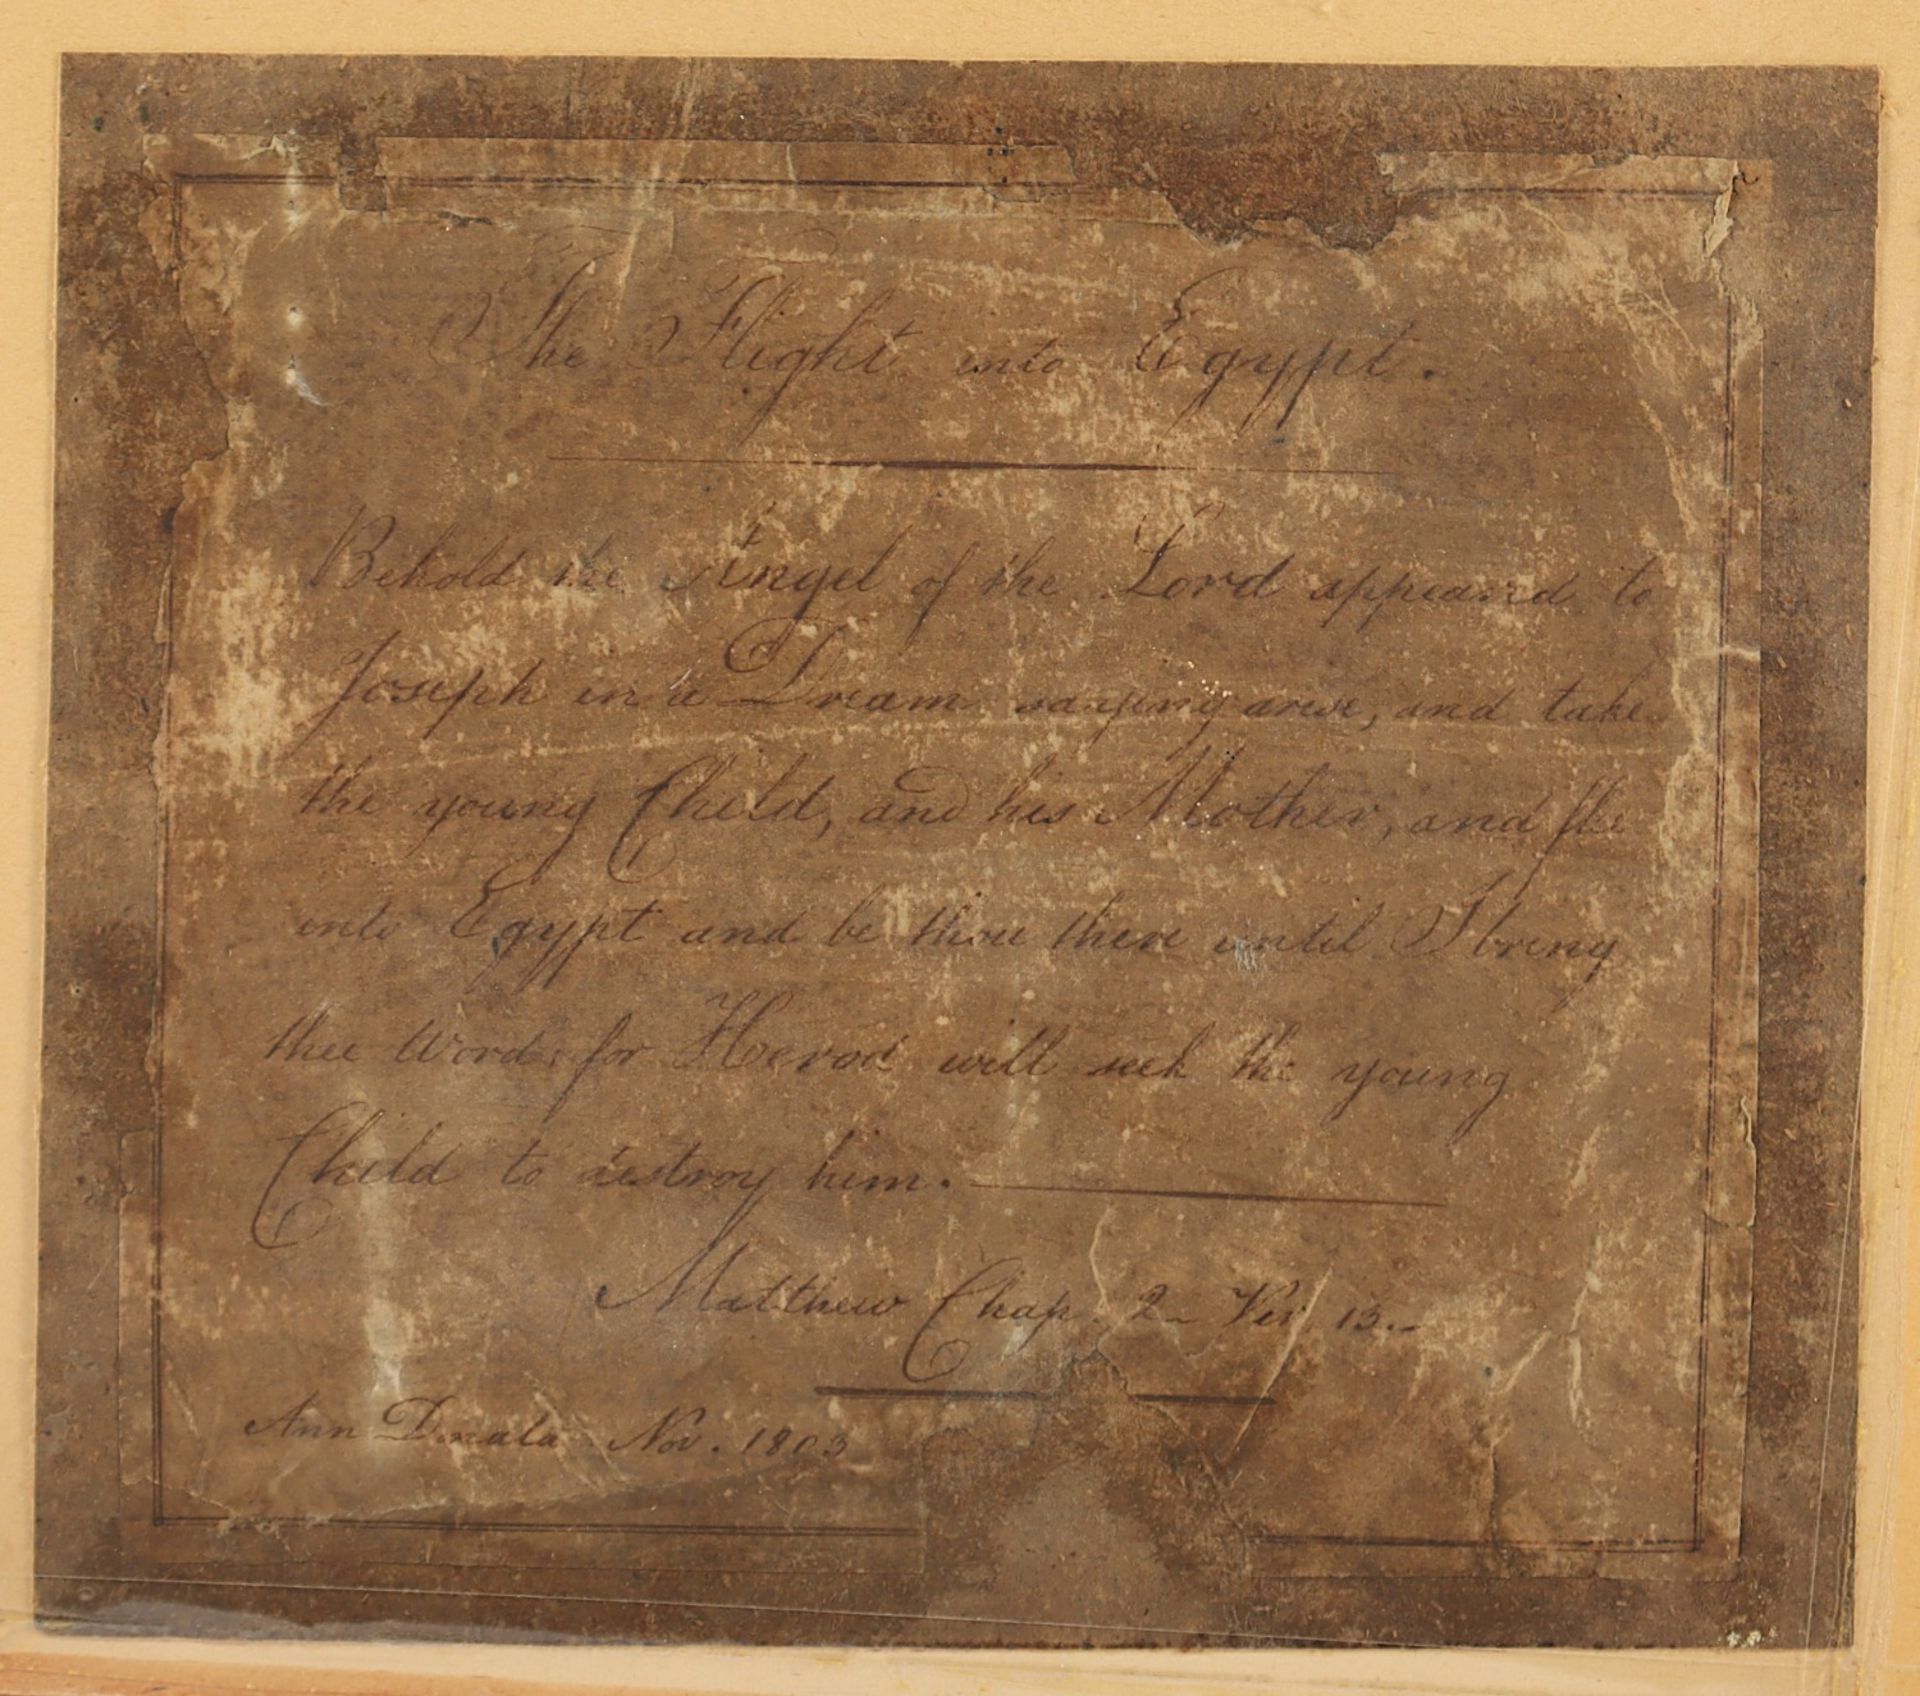 The Flight into Egypt.
Behold the Angel of the Lord appeared to
Joseph in a Dream saying arise, and take
the young Child, and his Mother, and flee
into Egypt and be thou there until I bring
thee Word: for Herod will seek the young
Child to destroy him.
Matthew Chap. 2 Ver. 13.
Ann Nov. 1803